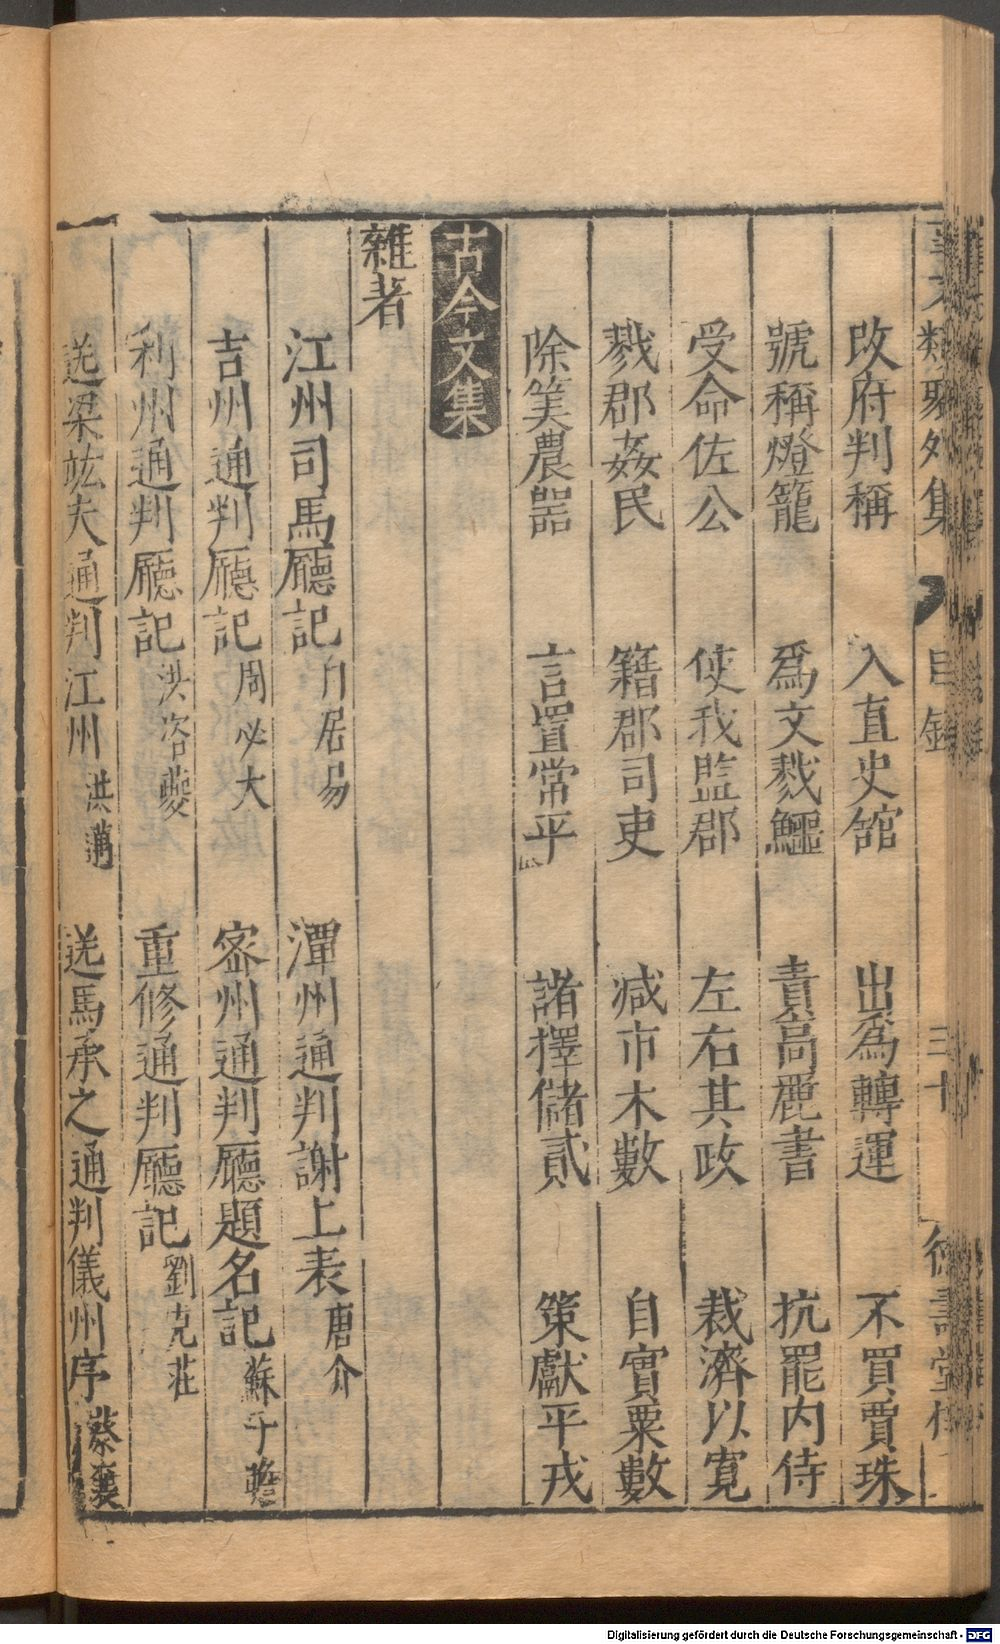 事文類聚外集 目錄 三十 德壽堂梓
改府判稱 入直史館 出爲轉運 不買賈珠
號稱燈籠 爲文戮鱷 責高麗書 抗罷内侍
受命佐公 使我監郡 左右其政 裁濟以寛
戮郡姦民 籍郡司吏 减市木數 自實粟數
除筭農噐 言置常平 諸擇儲貳 策獻平戎
古今文集
雜著
江州司馬廳記 白居易 潭州通判謝上表 唐介
吉州通判廳記 周必大 宻州通判廳題名記 蘇子瞻
利州通判廳記 洪咨夔 重修通判廳記 劉克莊
送梁竑夫通判江州 洪邁 送馬承之通判儀州序 蔡襄
Digitalisierung gefördert durch die Deutsche Forschungsgemeinschaft - DFG